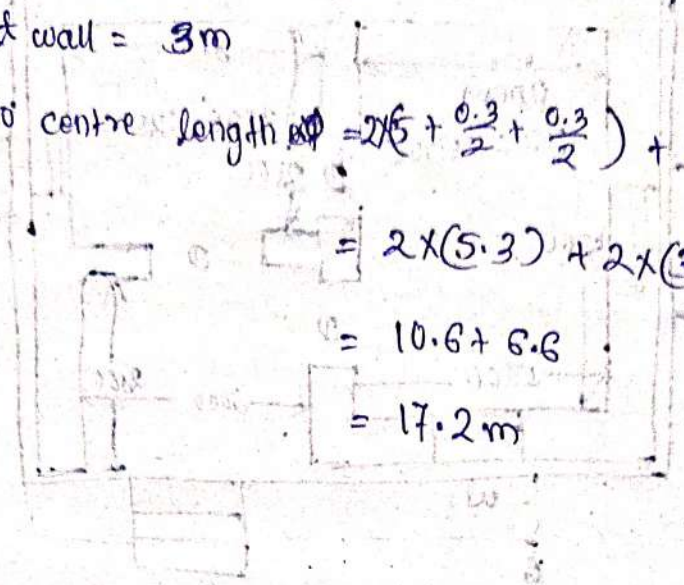 t wall = 3m
o centre length = 2×(5 + 0.3/2 + 0.3/2) +
= 2×(5.3) + 2×(3
= 10.6 + 6.6
= 17.2 m